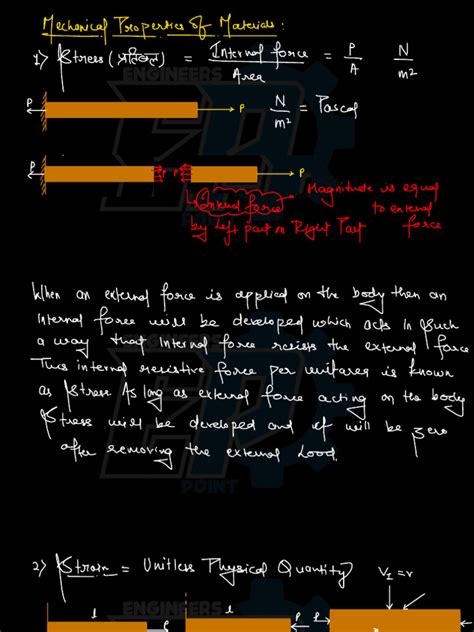 Mechanical Properties of Materials:
1) Stress (प्रतिबल) = Internal force / Area = P / A N / m²
P P N / m² = Pascal
P P P P
Internal force Magnitude is equal to external force
by Left part on Right Part
When an external force is applied on the body then an
internal force will be developed which acts in such
a way that internal force resists the external force
Thus internal resistive force per unit area is known
as Stress. As long as external force acting on the body
Stress will be developed and it will be zero
after removing the external Load.
2) Strain = Unitless Physical Quantity V₁=v
l l P P
ENGINEERS
POINT
ENGINEERS
POINT
ENGINEERS